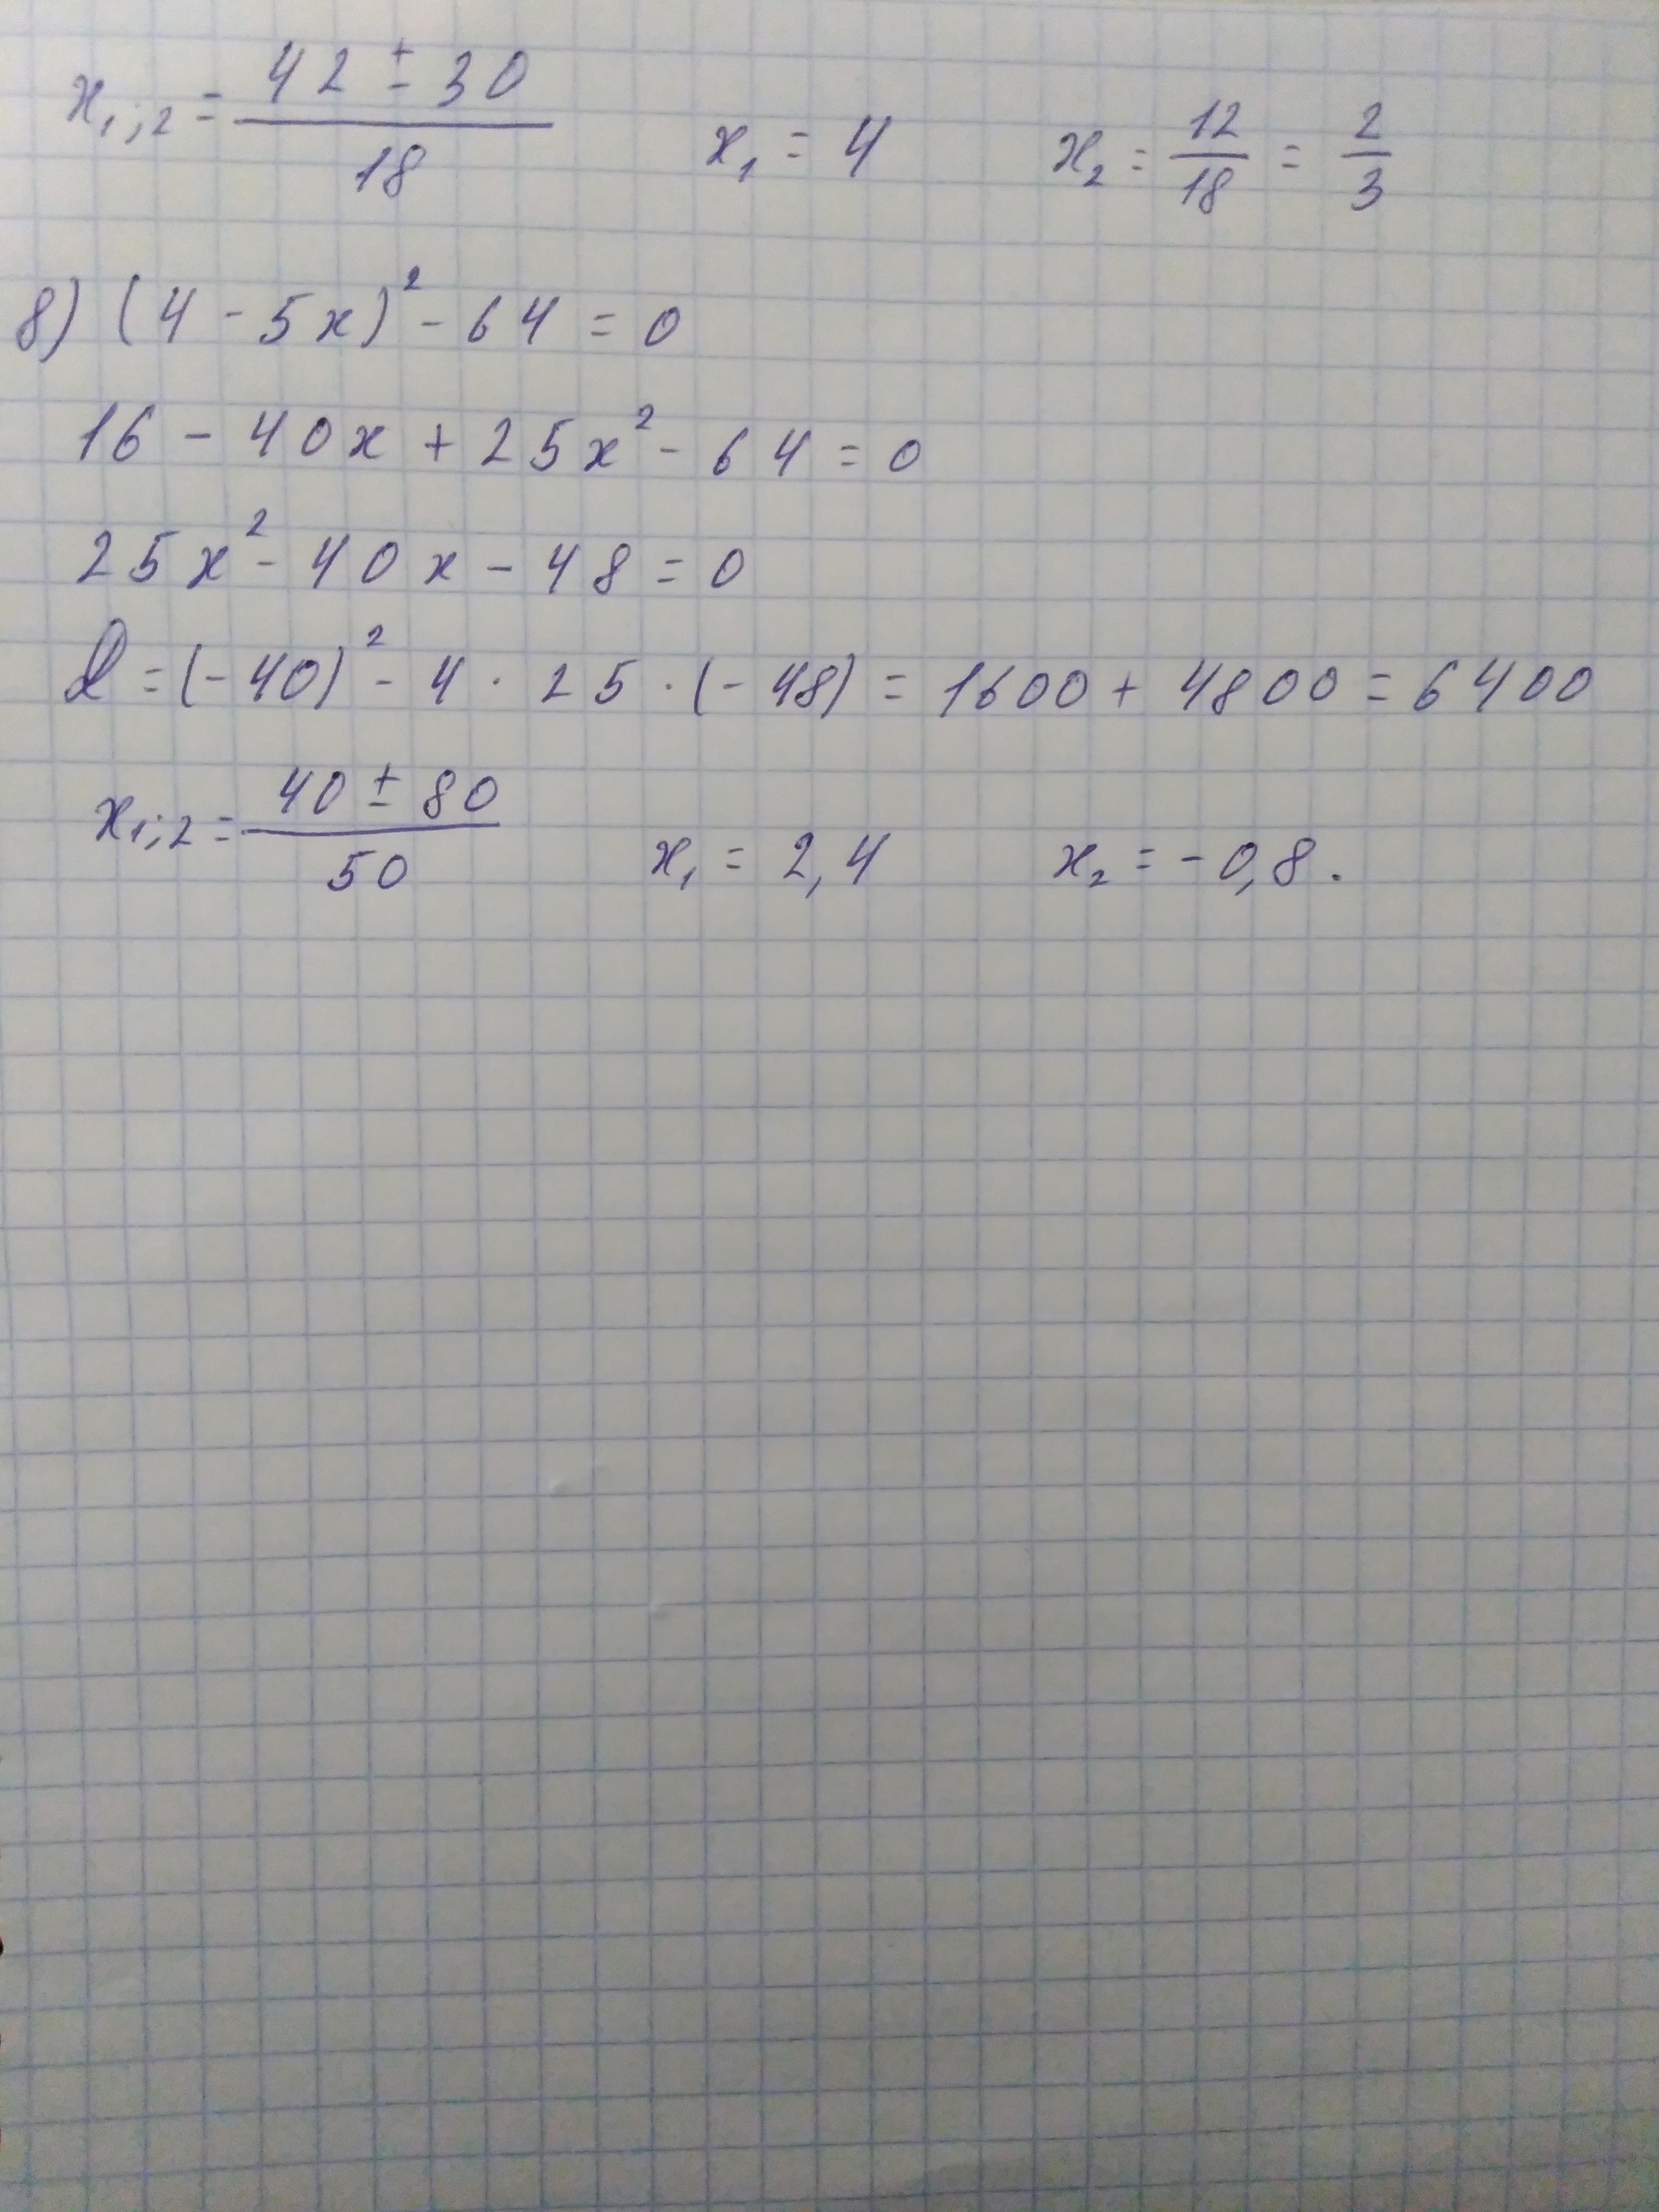 x₁;₂ = (42 ± 30)/18    x₁ = 4    x₂ = 12/18 = 2/3
8) (4 - 5x)² - 64 = 0
16 - 40x + 25x² - 64 = 0
25x² - 40x - 48 = 0
D = (-40)² - 4 · 25 · (-48) = 1600 + 4800 = 6400
x₁;₂ = (40 ± 80)/50    x₁ = 2,4    x₂ = -0,8.